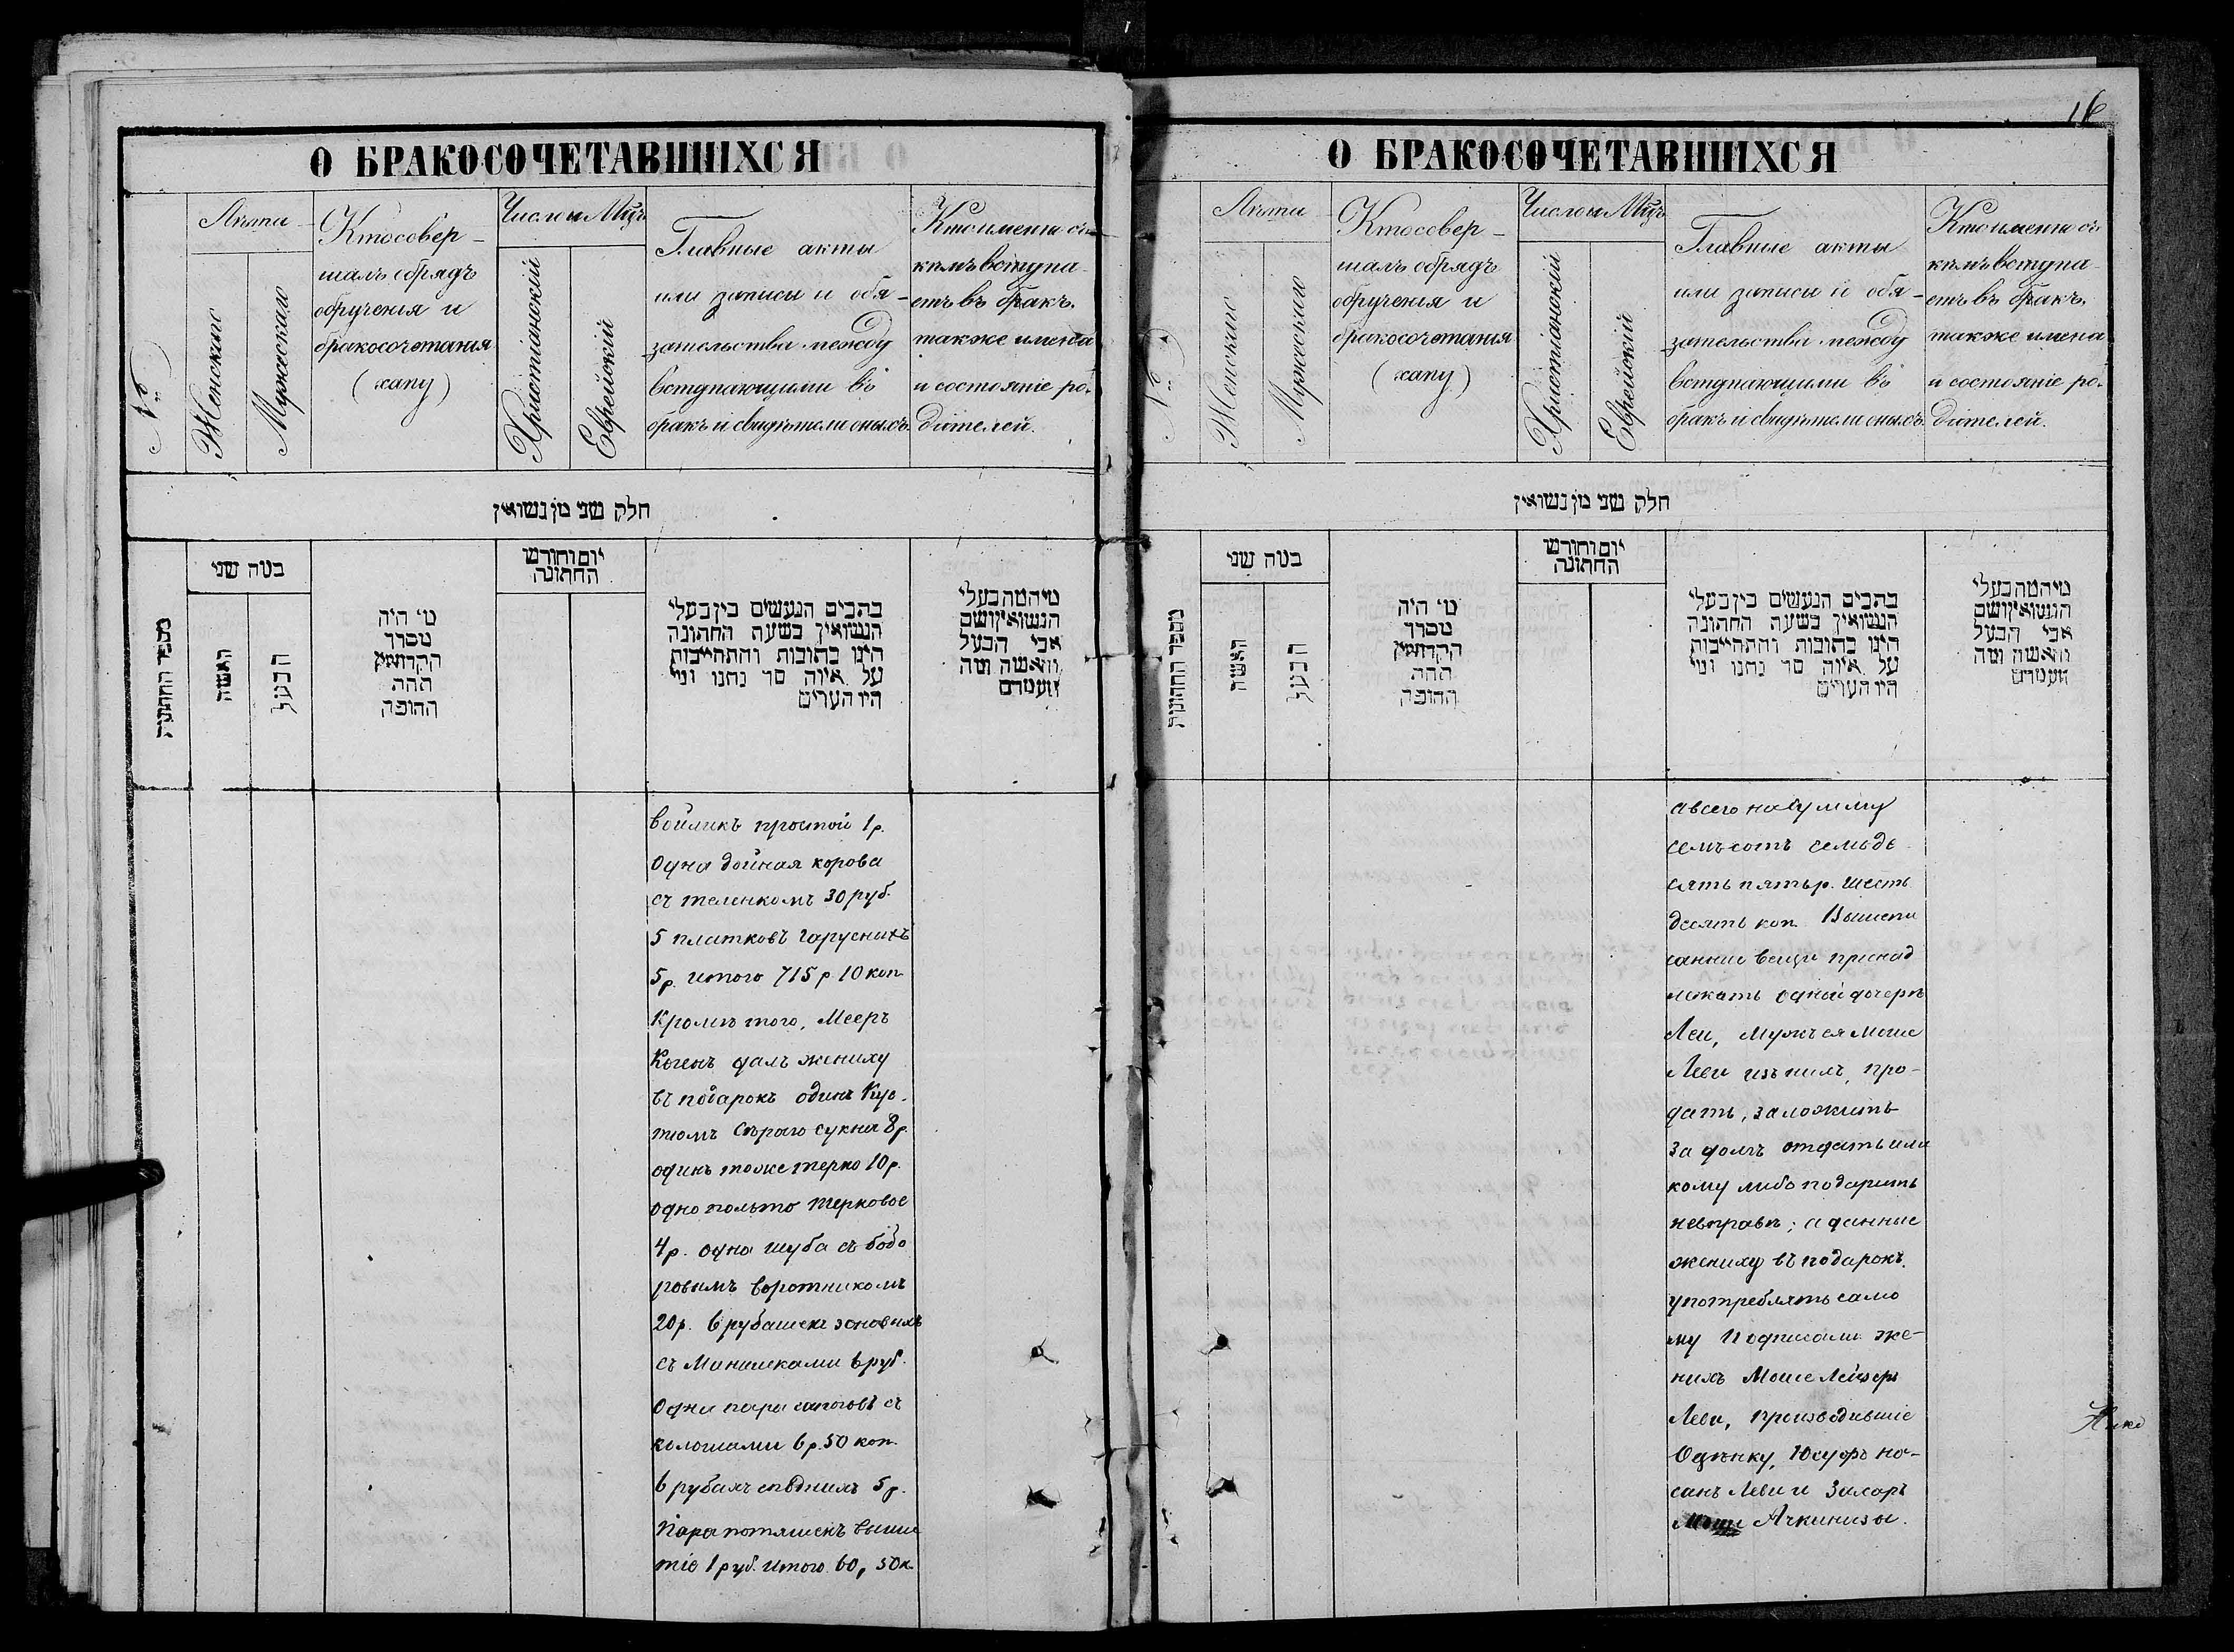 О БРАКОСОЧЕТАВШИХСЯ
№
Лѣта
Женскаго
Мужескаго
Кто совер-
шалъ обрядъ
обрученія и
бракосочетанія
(хапу)
Число и Мцъ
Христіанскій
Еврейскій
Главные акты
или записи и обя-
зательства между
вступающими въ
бракъ и свидѣтели оныхъ.
Кто именно съ
кѣмъ вступа-
етъ въ бракъ,
также имена
и состояніе ро-
дителей.
חלק שני מן נשואין
מספר החתונות
כמה שני
האשה
הבעל
מי היה
מסדר
הקדושין
תחת
החופה
יום וחודש
החתונה
כתבים הנעשים בין בעלי
הנשואין בשעת החתונה
היינו כתובות והתחייבות
על איזה סך נתנו ומי
היו העדים
מי המה בעלי
הנשואין ושם
אבי הבעל
והאשה ומה
מעמדם
войликъ простой 1р.
Одна дойная корова
съ теленкомъ 30 руб.
5 платковъ гарусныхъ
5р. итого 715 р 10 коп
Кромѣ того, Мееръ
Когенъ далъ жениху
въ подарокъ одинъ Кус-
тюмъ сѣраго сукна 8р.
одинъ тоже терно 10р.
одно польто терновое
4р. одна шуба съ бобо
ровымъ воротникомъ
20р. 6 рубашекъ зоновыхъ
съ Манишками 6 руб.
Одна пара сапоговъ съ
колошами 6р. 50 коп.
6 рубахъ сподныхъ 5р.
Пара потяшекъ выши
тіе 1 руб. Итого 60, 50к
16
О БРАКОСОЧЕТАВШИХСЯ
№
Лѣта
Женскаго
Мужескаго
Кто совер-
шалъ обрядъ
обрученія и
бракосочетанія
(хапу)
Число и Мцъ
Христіанскій
Еврейскій
Главные акты
или записи и обя-
зательства между
вступающими въ
бракъ и свидѣтели оныхъ.
Кто именно съ
кѣмъ вступа-
етъ въ бракъ,
также имена
и состояніе ро-
дителей.
חלק שני מן נשואין
מספר החתונות
כמה שני
האשה
הבעל
מי היה
מסדר
הקדושין
תחת
החופה
יום וחודש
החתונה
כתבים הנעשים בין בעלי
הנשואין בשעת החתונה
היינו כתובות והתחייבות
על איזה סך נתנו ומי
היו העדים
מי המה בעלי
הנשואין ושם
אבי הבעל
והאשה ומה
מעמדם
а всего на сумму
семъсотъ семьде
сять пять р. шесть
десять коп. Вышепи
санние вещи принад
лежатъ одной дочерѣ
Леи, мужъ ея Моше
Леви изъ нихъ, про-
дать, заложить
за долгъ отдать или
кому либо подарить
невправѣ; а данние
жениху въ подарокъ
употреблять само
му Подписали же-
нихъ Моше Лейзеръ
Леви, производившіе
Оцѣнку, Юсуфъ На-
санъ Леви и Захаръ
Ачкинизы.